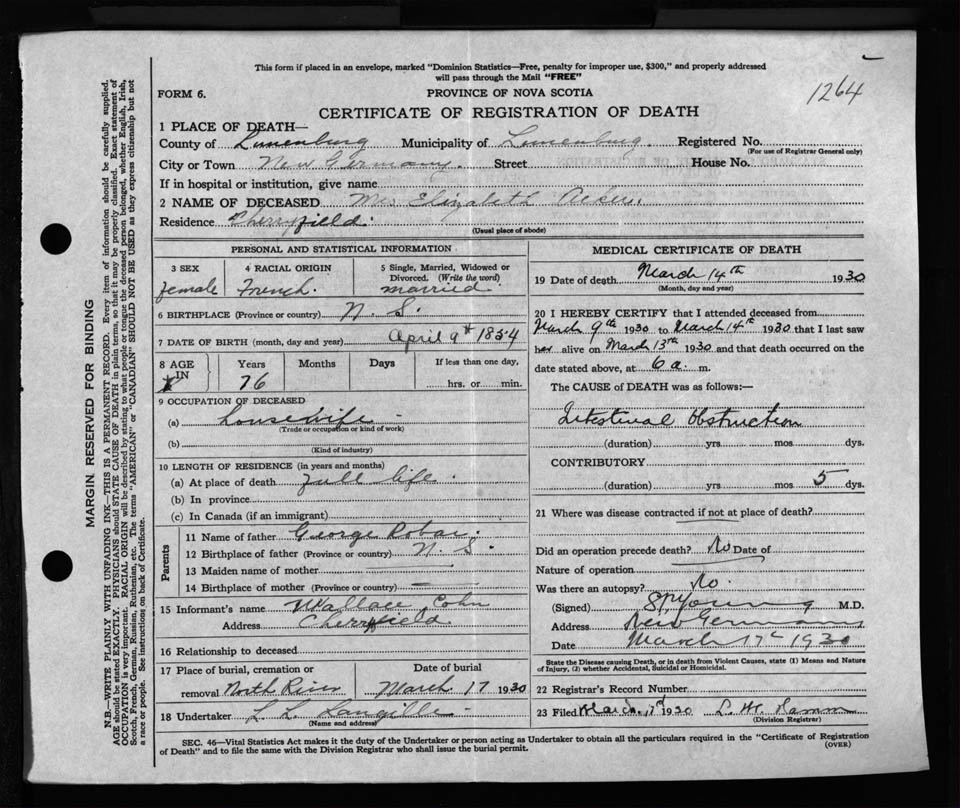 This form if placed in an envelope, marked "Dominion Statistics—Free, penalty for improper use, $300," and properly addressed
will pass through the Mail "FREE"
1264
FORM 6. PROVINCE OF NOVA SCOTIA
CERTIFICATE OF REGISTRATION OF DEATH
1 PLACE OF DEATH—
County of Lunenburg Municipality of Lunenburg. Registered No.
(For use of Registrar General only)
City or Town New Germany. Street House No.
If in hospital or institution, give name
2 NAME OF DECEASED Mrs Elizabeth Acker.
Residence Cherryfield.
(Usual place of abode)
PERSONAL AND STATISTICAL INFORMATION
3 SEX 4 RACIAL ORIGIN 5 Single, Married, Widowed or
Divorced. (Write the word)
female French. married
6 BIRTHPLACE (Province or country) N. S.
7 DATE OF BIRTH (month, day and year) April 9th 1854
8 AGE IN Years Months Days If less than one day,
76 hrs. or min.
9 OCCUPATION OF DECEASED
(a) housewife
(Trade or occupation or kind of work)
(b)
(Kind of industry)
10 LENGTH OF RESIDENCE (in years and months)
(a) At place of death full life.
(b) In province
(c) In Canada (if an immigrant)
Parents
11 Name of father George Robar.
12 Birthplace of father (Province or country) N. S.
13 Maiden name of mother —
14 Birthplace of mother (Province or country) —
15 Informant's name Wallace Cohn
Address Cherryfield
16 Relationship to deceased
17 Place of burial, cremation or removal North River Date of burial March 17 1930
18 Undertaker L. L. Langille
(Name and address)
MEDICAL CERTIFICATE OF DEATH
19 Date of death March 14th 1930
(Month, day and year)
20 I HEREBY CERTIFY that I attended deceased from
March 9th 1930 to March 14th 1930 that I last saw
her alive on March 13th 1930 and that death occurred on the
date stated above, at 6 a. m.
The CAUSE OF DEATH was as follows:—
Intestinal Obstruction
(duration) yrs mos dys.
CONTRIBUTORY
(duration) yrs. mos 5 dys.
21 Where was disease contracted if not at place of death?
Did an operation precede death? No Date of
Nature of operation
Was there an autopsy? No.
(Signed) Young M.D.
Address New Germany
Date March 17th 1930
State the Disease causing Death, or in death from Violent Causes, state (1) Means and Nature
of Injury, (2) whether Accidental, Suicidal or Homicidal.
22 Registrar's Record Number
23 Filed March 17 1930 L. M.
(Division Registrar)
SEC. 46—Vital Statistics Act makes it the duty of the Undertaker or person acting as Undertaker to obtain all the particulars required in the "Certificate of Registration
of Death" and to file the same with the Division Registrar who shall issue the burial permit. (OVER)
MARGIN RESERVED FOR BINDING
N.B.—WRITE PLAINLY WITH UNFADING INK—THIS IS A PERMANENT RECORD. Every item of information should be carefully supplied.
AGE should be stated EXACTLY. PHYSICIANS should STATE CAUSE OF DEATH in plain terms, so that it may be properly classified. Exact statement of
OCCUPATION is very important. RACIAL ORIGIN will be described by stating to what people or tongue the deceased person belonged, whether English, Irish,
Scotch, French, German, Russian, Ruthenian, etc. The terms "AMERICAN" or "CANADIAN" SHOULD NOT BE USED as they express citizenship but not
a race or people. See instructions on back of Certificate.